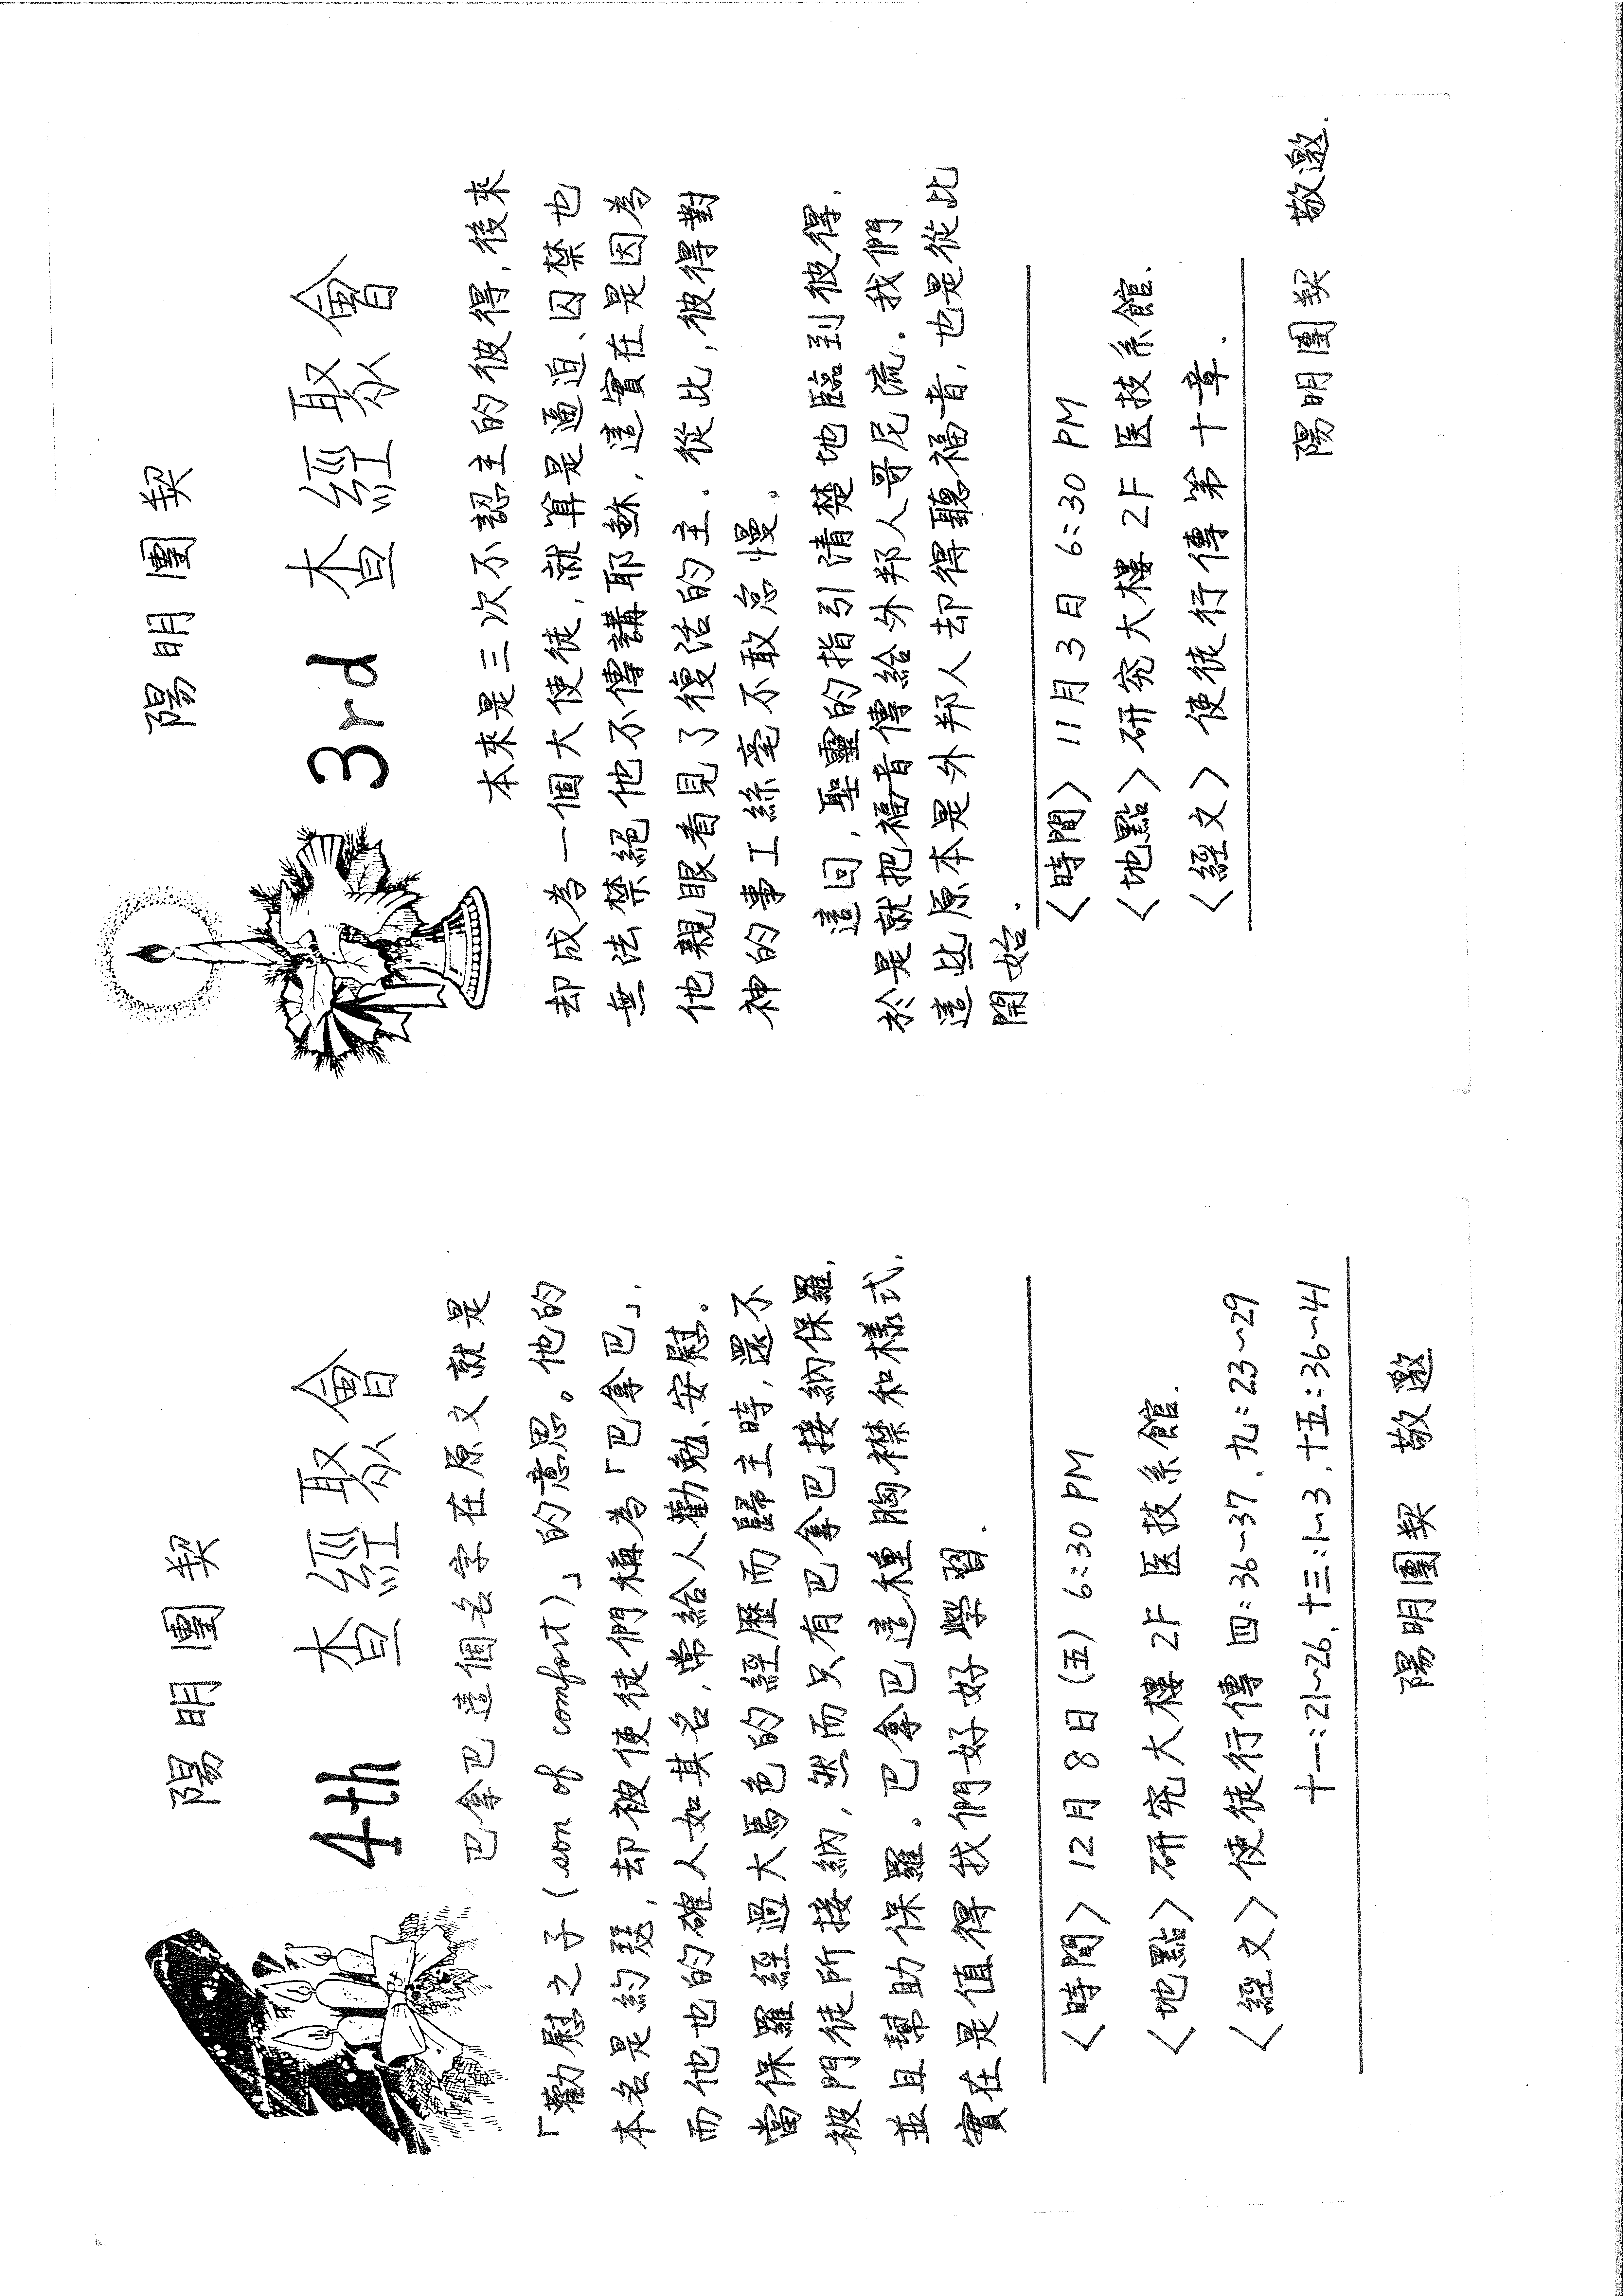 陽明團契
4th 查經聚會
巴拿巴這個名字在原文就是
「勸慰之子(son of comfort)」的意思。他的
本名是約瑟,却被使徒們稱為「巴拿巴」,
而他也的確人如其名,常給人勸勉、安慰。
當保羅經過大馬色的經歷而歸主時,還不
被門徒所接納,然而只有巴拿巴接納保羅,
並且幫助保羅。巴拿巴這種胸襟和樣式.
實在是值得我們好好學習.
〈時間〉12月8日(五) 6:30 PM
〈地點〉研究大樓 2F 医技系館.
〈經文〉使徒行傳 四:36~37、九:23~29
十一:21~26、十三:1~3,十五:36~41
陽明團契 敬邀
陽明團契
3rd 查經聚會
本來是三次不認主的彼得,後來
却成為一個大使徒,就算是逼迫、囚禁也
無法禁絕他不傳講耶穌,這實在是因為
他親眼看見了復活的主.從此,彼得對
神的事工絲毫不敢怠慢。
這回,聖靈的指引清楚地臨到彼得.
於是就把福音傳給外邦人哥尼流.我們
這些原本是外邦人却得聽福音,也是從此
開始.
〈時間〉11月3日 6:30 PM
〈地點〉研究大樓 2F 医技系館.
〈經文〉使徒行傳第十章.
陽明團契 敬邀.